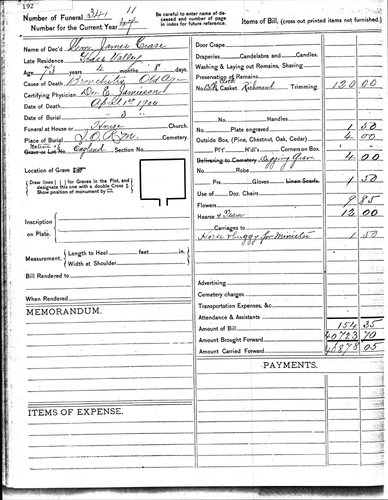 192
Number of Funeral 341 11
Number for the Current Year
Be careful to enter name of deceased and number of page in index for future reference.
Items of Bill, (cross out printed items not furnished.)
Name of Dec'd Wm James Case
Late Residence Grass Valley
Age 73 years 4 months 8 days
Cause of Death Bronchitis Old Age
Certifying Physician Dr. E. Jamieson
Date of Death April 1st 1904
Date of Burial " 3 "
Funeral at House or House Church.
Place of Burial I.O.R.M. Cemetery
Native of England Section No.
Grave or Lot No.
Location of Grave
Draw lines for Graves in the Plot, and designate this one with a double Cross
Show position of monument by
Inscription on Plate.
Measurement. Length to Heel feet in.
Width at Shoulder
Bill Rendered to
When Rendered
MEMORANDUM.
ITEMS OF EXPENSE.
Door Crape
Draperies Candelabra and Candles.
Washing & Laying out Remains, Shaving
Preservation of Remains
No. Cloth Casket, Richmond Trimming. 120 00
No. Handles
Plate engraved 1 50
Outside Box, (Pine, Chestnut, Oak, Cedar) 4 00
P'l'y H'd'l's Corners on Box.
Delivering to Cemetery Digging Grave 4 00
Prs. Gloves Linen Scarfs. 1 50
No. Robe
Use of Doz. Chairs
Flowers 9 85
Hearse & Team 12 00
Carriages to
Horse & Buggy for Minister 1 50
Advertising
Cemetery charges
Transportation Expenses, &c.
Attendance & Assistants
Amount of Bill 154 35
Amount Brought Forward 40723 70
Amount Carried Forward 40878 05
PAYMENTS.